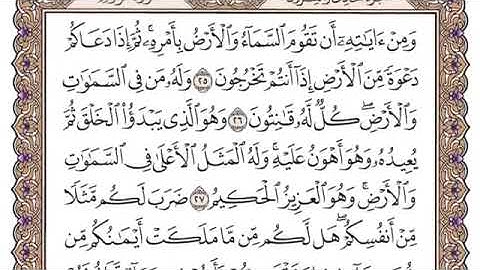 وَمِنْ ءَايَٰتِهِۦٓ أَن تَقُومَ ٱلسَّمَآءُ وَٱلْأَرْضُ بِأَمْرِهِۦۚ ثُمَّ إِذَا دَعَاكُمْ
دَعْوَةً مِّنَ ٱلْأَرْضِ إِذَآ أَنتُمْ تَخْرُجُونَ ۝٢٥ وَلَهُۥ مَن فِى ٱلسَّمَٰوَٰتِ
وَٱلْأَرْضِۖ كُلٌّ لَّهُۥ قَٰنِتُونَ ۝٢٦ وَهُوَ ٱلَّذِى يَبْدَؤُا۟ ٱلْخَلْقَ ثُمَّ
يُعِيدُهُۥ وَهُوَ أَهْوَنُ عَلَيْهِۚ وَلَهُ ٱلْمَثَلُ ٱلْأَعْلَىٰ فِى ٱلسَّمَٰوَٰتِ
وَٱلْأَرْضِۚ وَهُوَ ٱلْعَزِيزُ ٱلْحَكِيمُ ۝٢٧ ضَرَبَ لَكُم مَّثَلًا
مِّنْ أَنفُسِكُمْۖ هَل لَّكُم مِّن مَّا مَلَكَتْ أَيْمَٰنُكُم مِّن